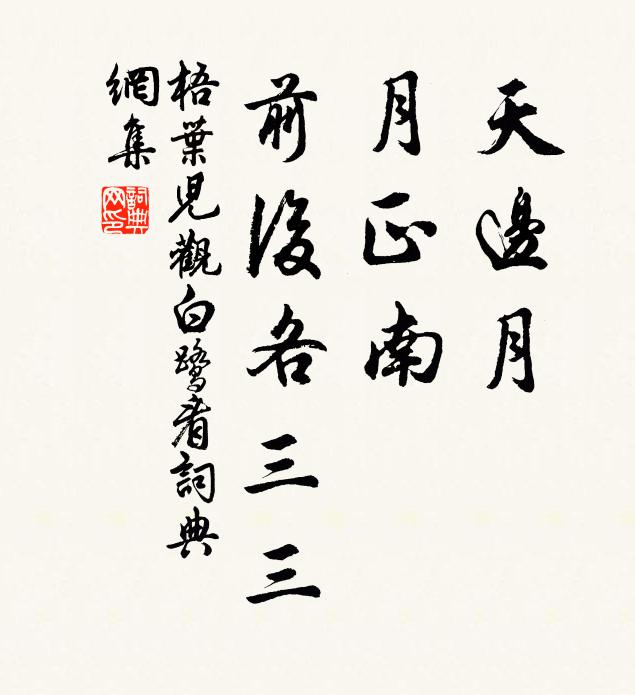 天邊月
月正南
前後各三三
梧葉兒觀白鹭者詞典
網集
詞典
网印